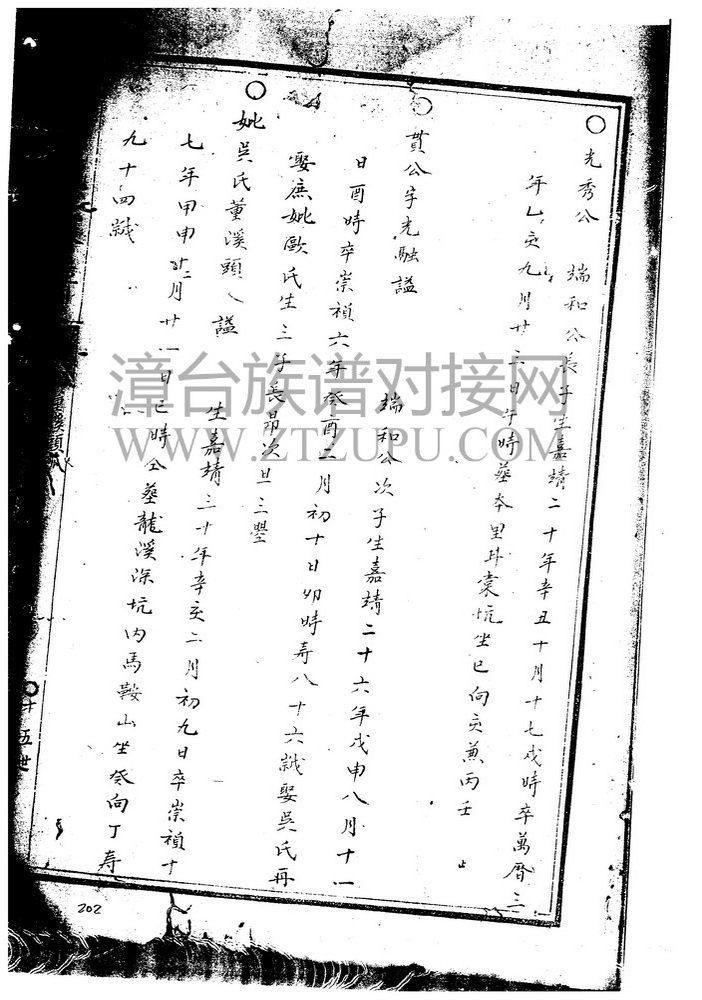 光秀公 端和公長子生嘉靖二十年辛丑十月十七戌時卒萬曆三
年乙亥九月廿三日午時葬本里井棠坑坐巳向亥兼丙壬
貫公字光融謚 端和公次子生嘉靖二十六年戊申八月十一
日酉時卒崇禎六年癸酉二月初十日卯時寿八十六歲娶吳氏再
娶庶妣歐氏生三子長昂次旦三
妣吳氏董溪頭人謚 生嘉靖三十年辛亥二月初九日卒崇禎十
七年甲申 月廿一日巳時仝葬龍溪深坑内馬鞍山坐癸向丁寿
九十四歲
溪頭
十五世
202
漳台族谱对接网
WWW.ZTZUPU.COM